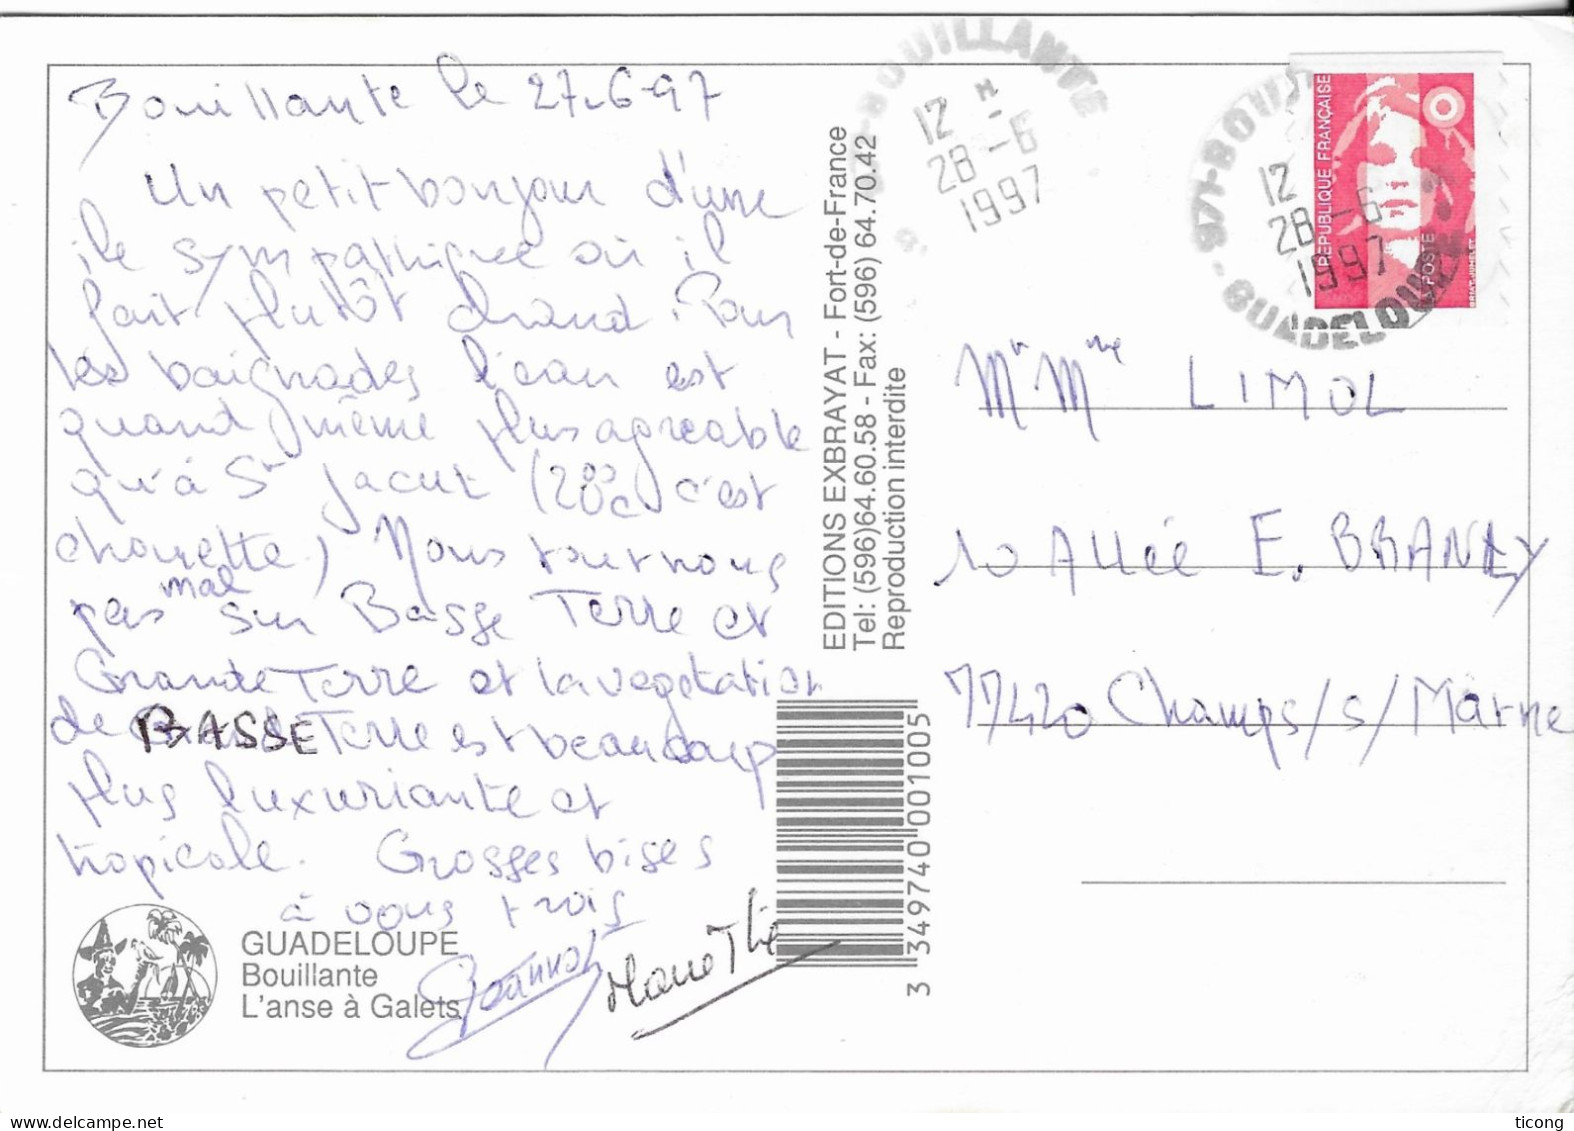 Bouillante le 27-6-97
Un petit bonjour d'une
ile sympathique où il
fait plutôt chaud. Pour
les baignades l'eau est
quand même plus agréable
qu'à St Jacut (28°C c'est
chouette) Nous tournons
pas mal sur Basse Terre et
Grande Terre et la vegetation
de BASSE Terre est beaucoup
plus luxuriante et
tropicale. Grosses bises
à vous trois
GUADELOUPE
Bouillante
L'anse à Galets
EDITIONS EXBRAYAT - Fort-de-France
Tel: (596)64.60.58 - Fax: (596) 64.70.42
Reproduction interdite
3 349740 001005
BOUILLANTE
12 H
28-6
1997
971-BOUIL
GUADELOUPE
12
28-6
1997
REPUBLIQUE FRANÇAISE
POSTE
BRIAT-JUMELET
Mr Mme LIMOL
10 Allée E. BRANLY
77420 Champs/s/Marne
ticong